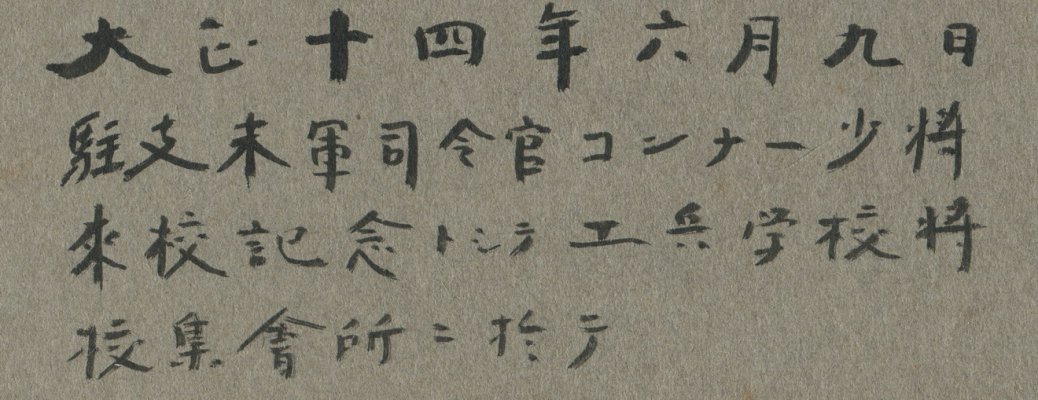 大正十四年六月九日
駐支米軍司令官コンナー少将
來校記念トシテ工兵学校将
校集會所ニ於テ